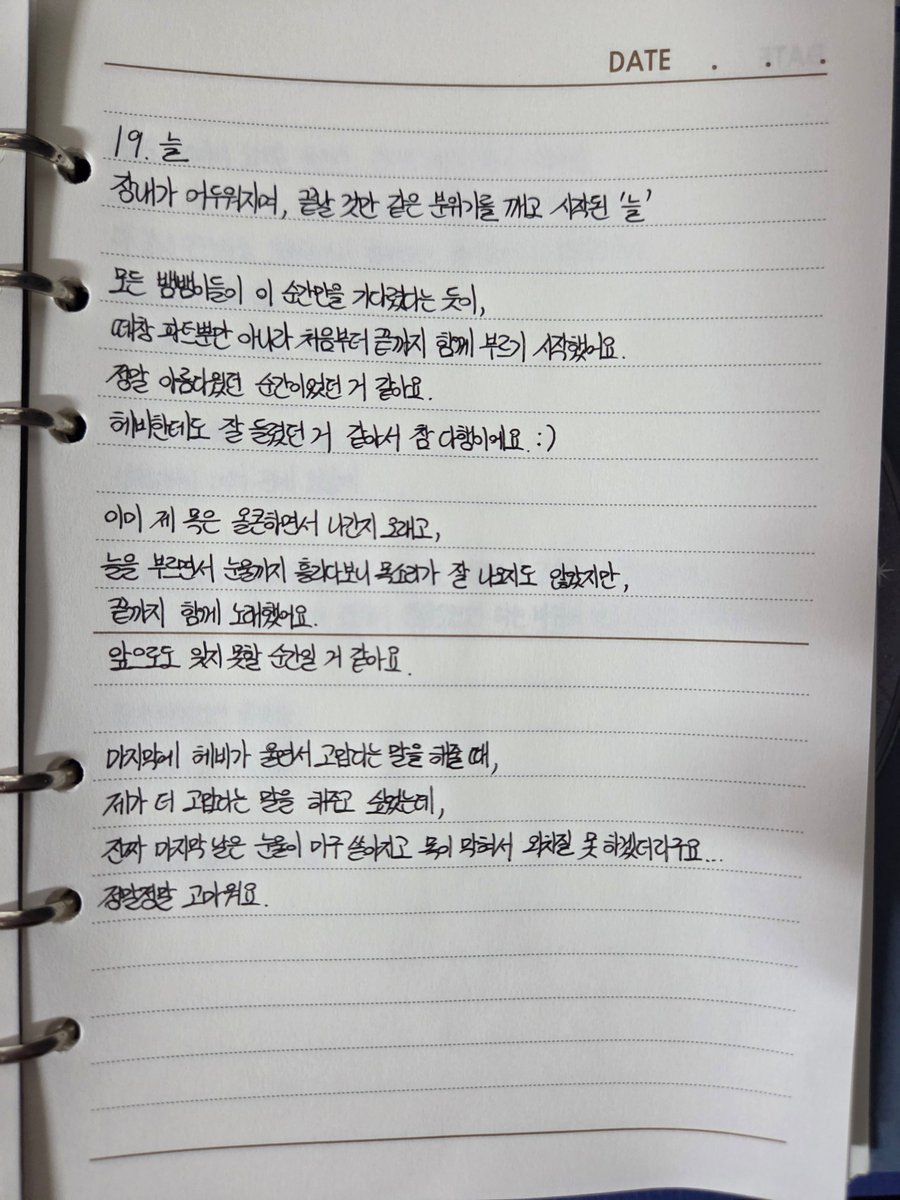 DATE . . .
19. 늘
장내가 어두워지며, 끝날 것만 같은 분위기를 깨고 시작된 '늘'
모든 뱅뱅이들이 이 순간만을 기다렸다는 듯이,
떼창 파트뿐만 아니라 처음부터 끝까지 함께 부르기 시작했어요.
정말 아름다웠던 순간이었던 거 같아요.
헤비한테도 잘 들렸던 거 같아서 참 다행이에요. :)
이미 제 목은 울큰하면서 나간지 오래고,
늘을 부르면서 눈물까지 흘리다보니 목소리가 잘 나오지도 않았지만,
끝까지 함께 노래했어요.
앞으로도 잊지 못할 순간일 거 같아요.
마지막에 헤비가 울면서 고맙다는 말을 해줄 때,
제가 더 고맙다는 말을 해주고 싶었는데,
진짜 마지막 날은 눈물이 마구 쏟아지고 목이 막혀서 외치질 못 하겠더라구요...
정말정말 고마워요.